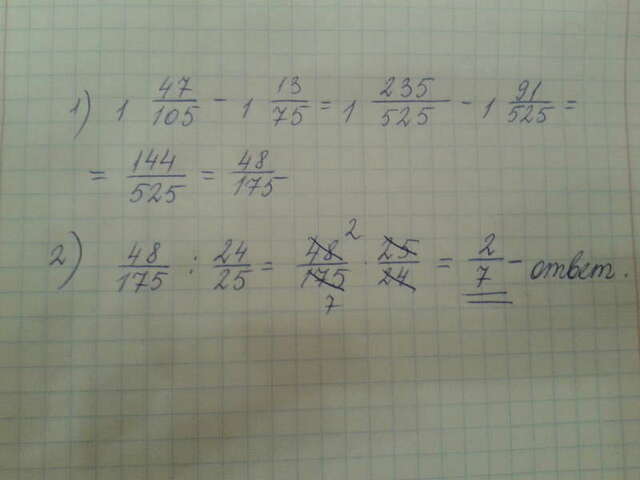 1) 1 47/105 - 1 13/75 = 1 235/525 - 1 91/525 =
= 144/525 = 48/175
2) 48/175 : 24/25 = 48 2/175 7 · 25/24 = 2/7 - ответ.